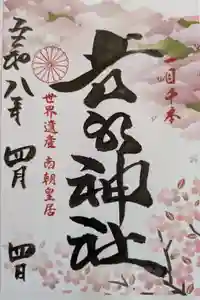 一目千本
吉水神社
世界遺産 南朝皇居
令和八年 四月 四日